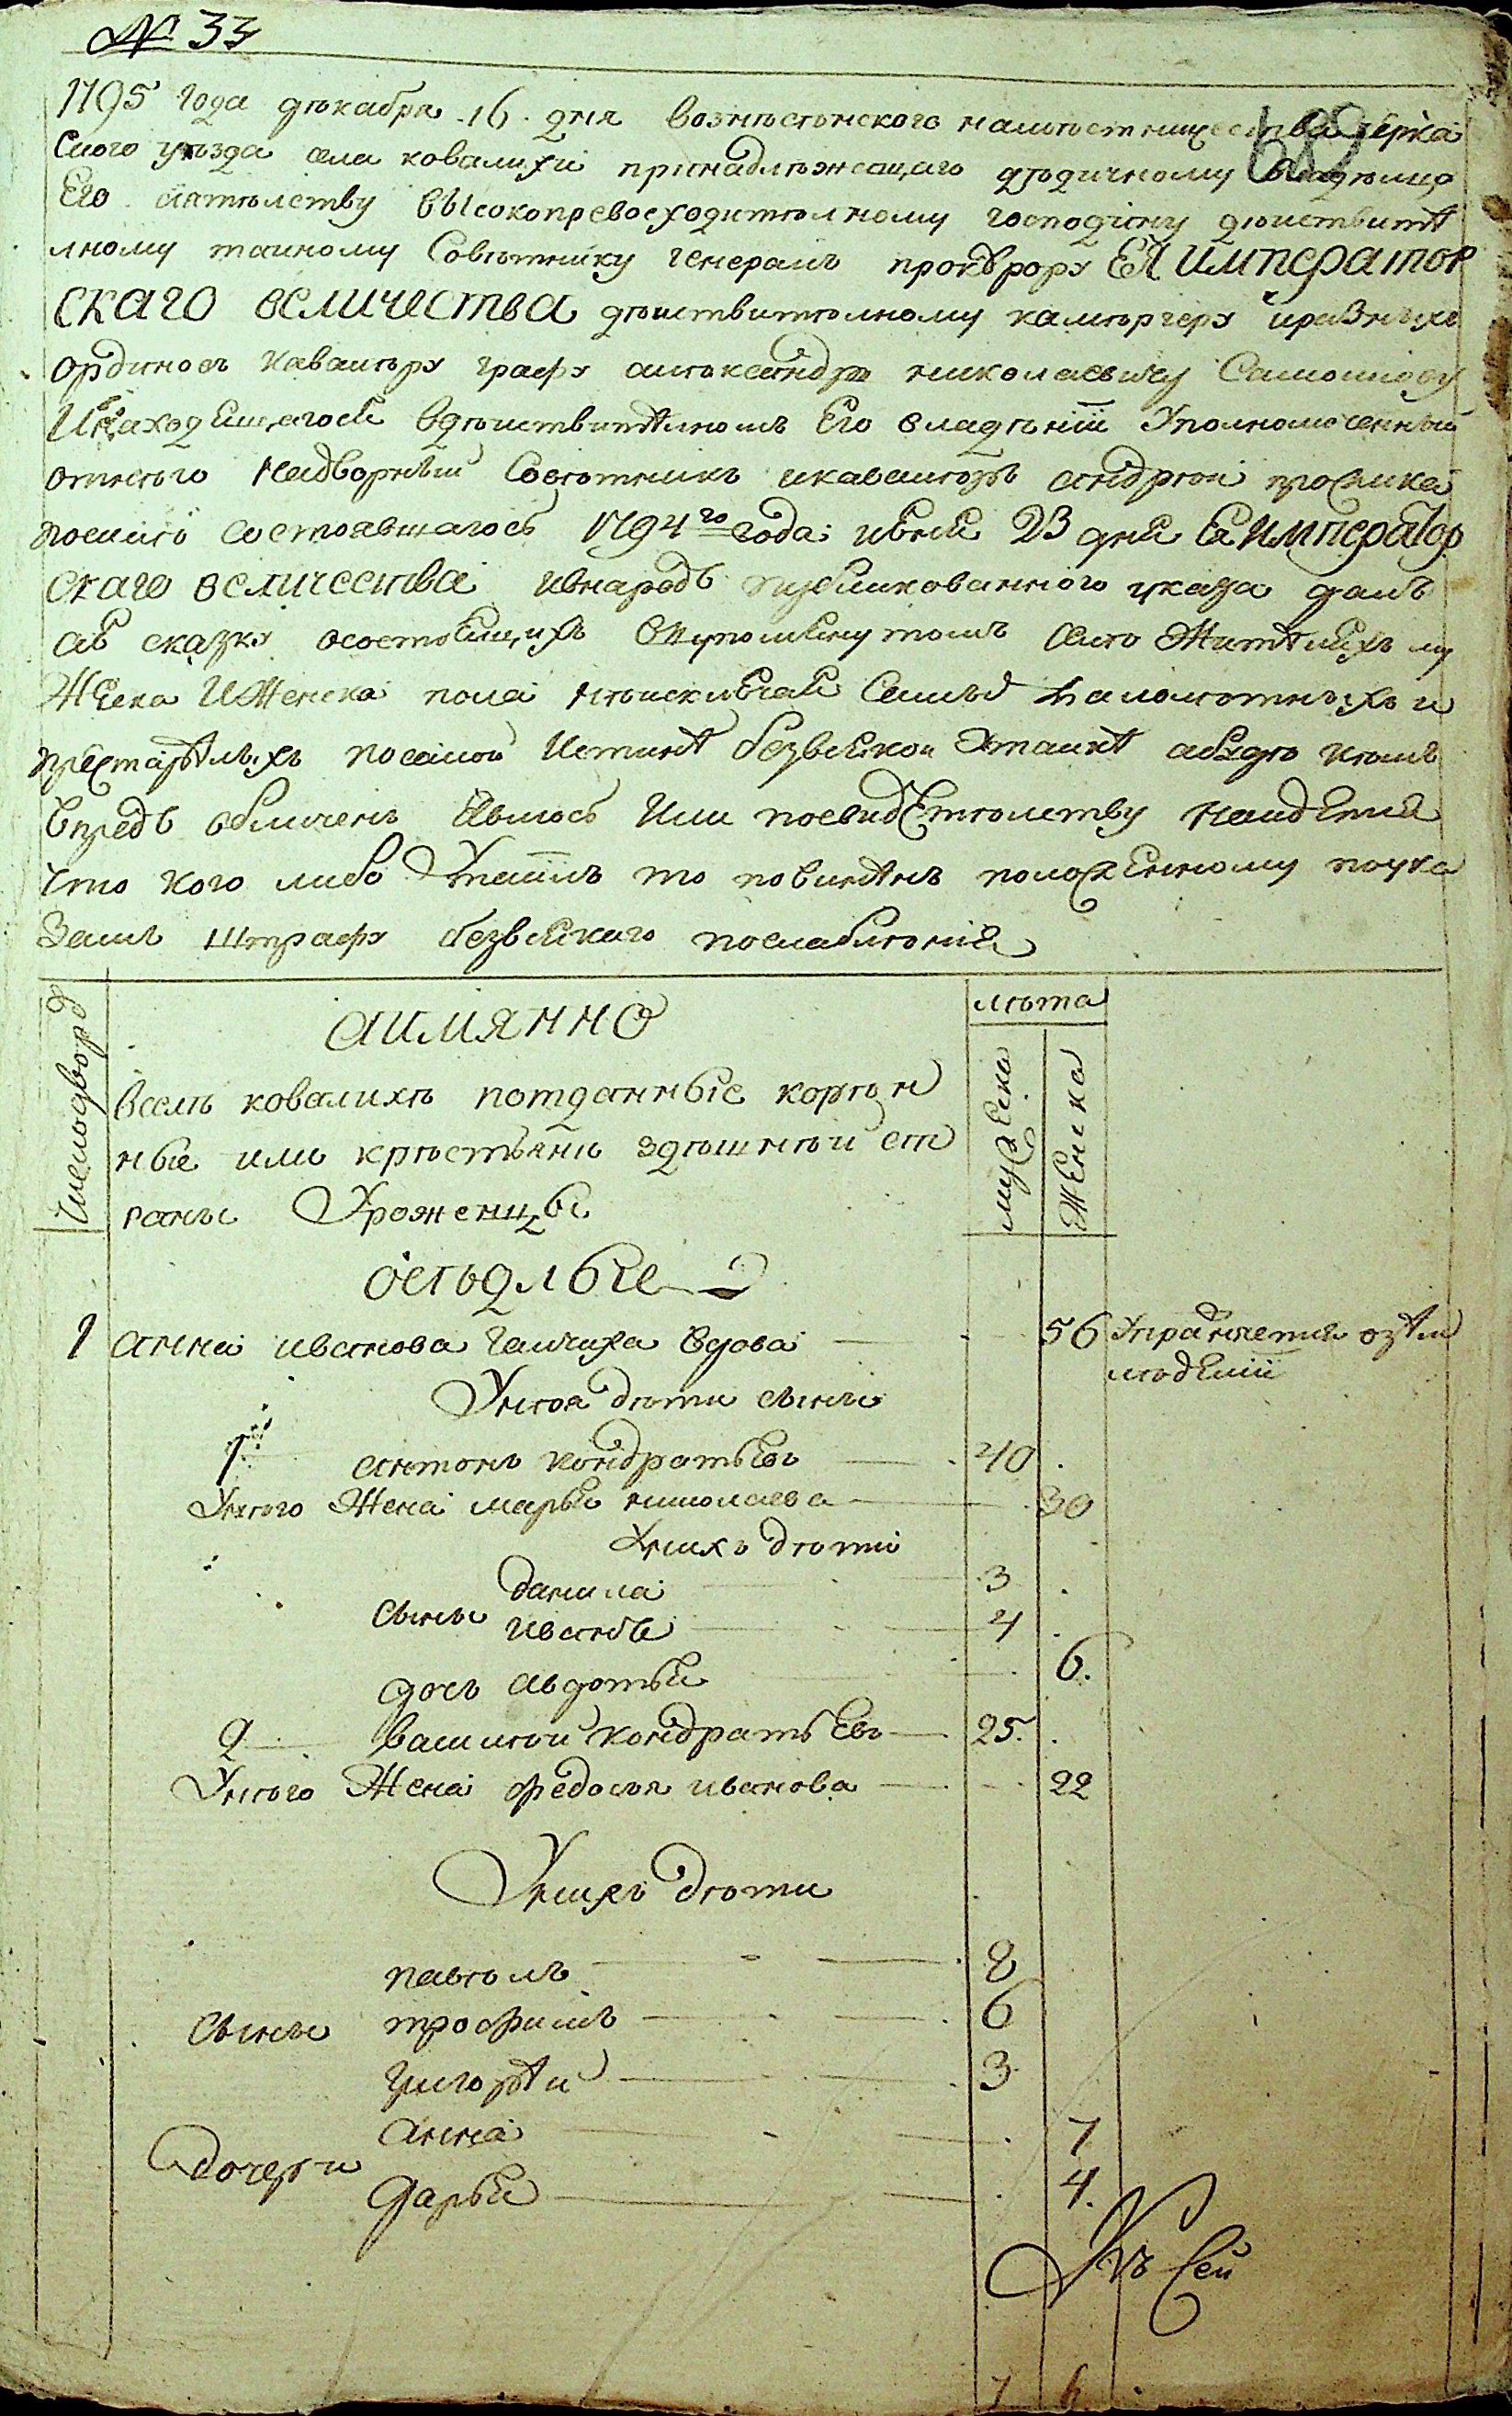 № 33
689
1795 года декабря 16 дня вознесенского наместничества черка
ского уезда села ковалихи принадлежащаго дедичному владелцу
Его сиятелству высокопревосходителному господину действите
лному таиному Советнику генералъ прокурору ЕЯ император
скаго величества действителному камергеру иразныхъ
ординовъ кавалеру графу александру николаевичу Самоилову
Инаходящагося вдействителномъ Его владении Уполномоченныи
отнего надворныи Советникъ икавалеръ андреи
посиле состоявшагося 1794го года июня 23 дня Ея император
скаго величества ивнародъ публикованного указа далъ
сию сказку осостоящихъ впомянутомъ селе Жителяхъ му
жеска ИЖенска пола неисключая самыхъ малолетныхъ и
престарелыхъ посамои Истине безвсякои Утаики абуде вчемъ
впредь обличенъ явлюсь Или посвидетелству наидется
что кого либо Утаилъ то повиненъ положенному поука
замъ штрафу безвсякаго послабления
число дворо
аимянно
лета
мужеска
Женска
вселе ковалихе потданные корен
ные или крестьяне здешнеи ст
раны Уроженцы
оселые
1 анна иванова галчиха вдова 56 Упражняется вземле
леделии
Унея дети сыны
1 антонъ кондратьевъ 40
Унего Жена марья николаева 30
Унихъ дети
данила 3
сыны иванъ 4
дочь авдотья 6
2 василеи кондратьевъ 25
Унего Жена федосья иванова 22
Унихъ дети
павелъ 8
сыны трофимъ 6
григореи 3
анна 7
дочери
дарья 4
Къ сей
7 6